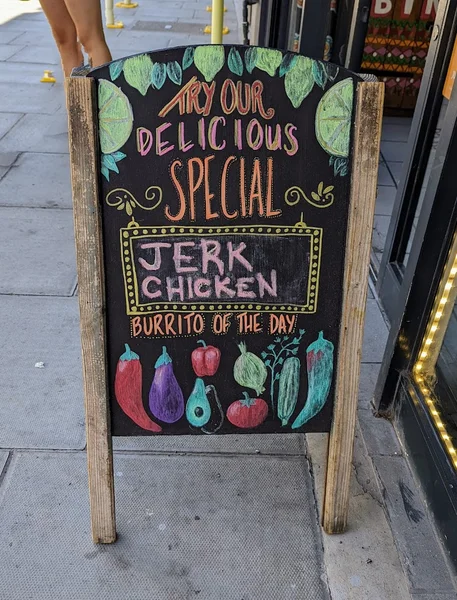 TRY OUR
DELICIOUS
SPECIAL
JERK
CHICKEN
BURRITO OF THE DAY